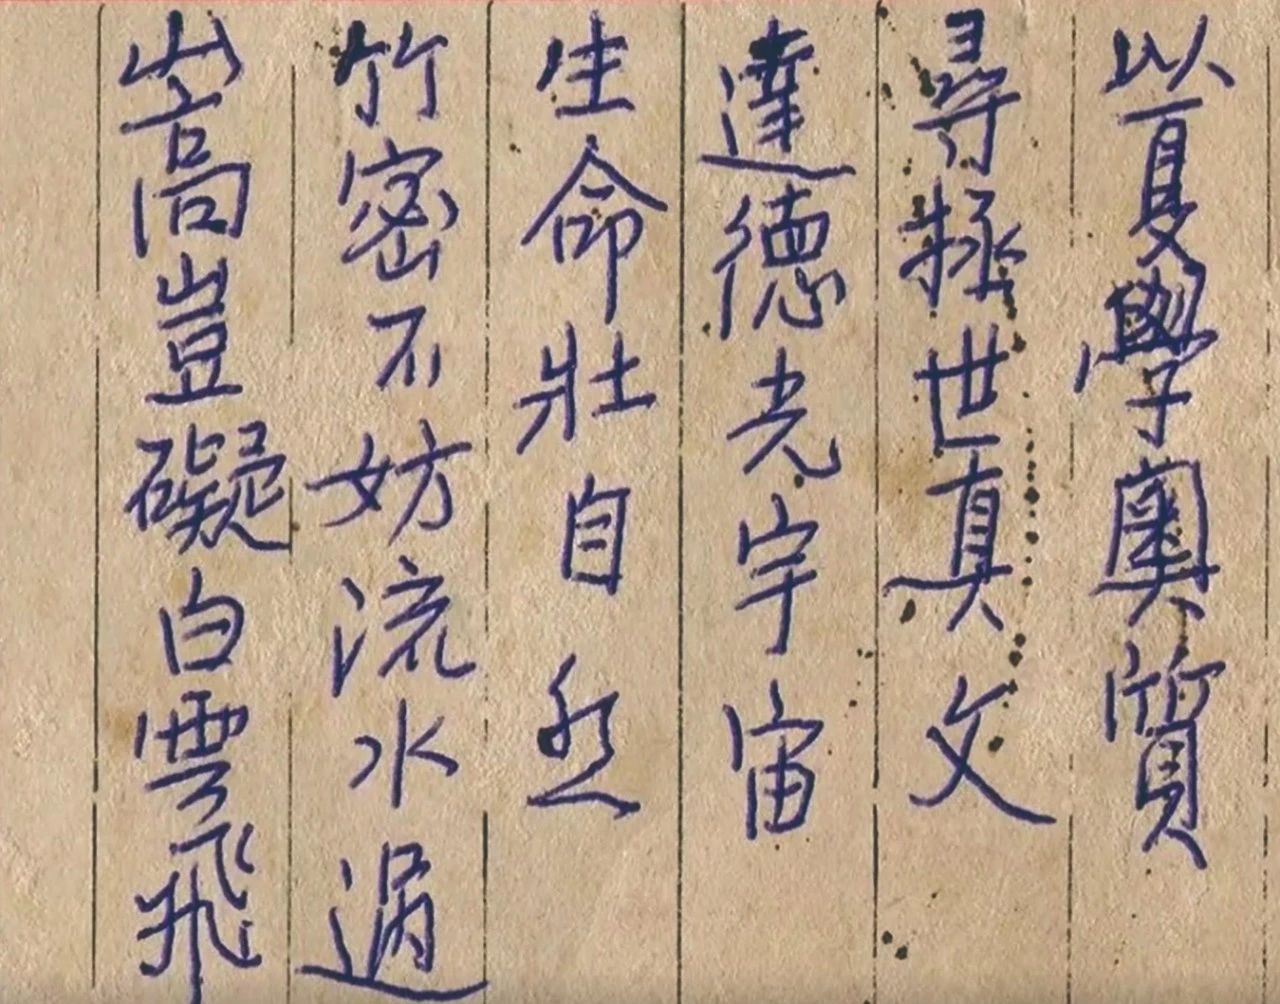 以夏學奧質
尋拯世真文
達德光宇宙
生命壯自然
竹密不妨流水過
山高豈礙白雲飛